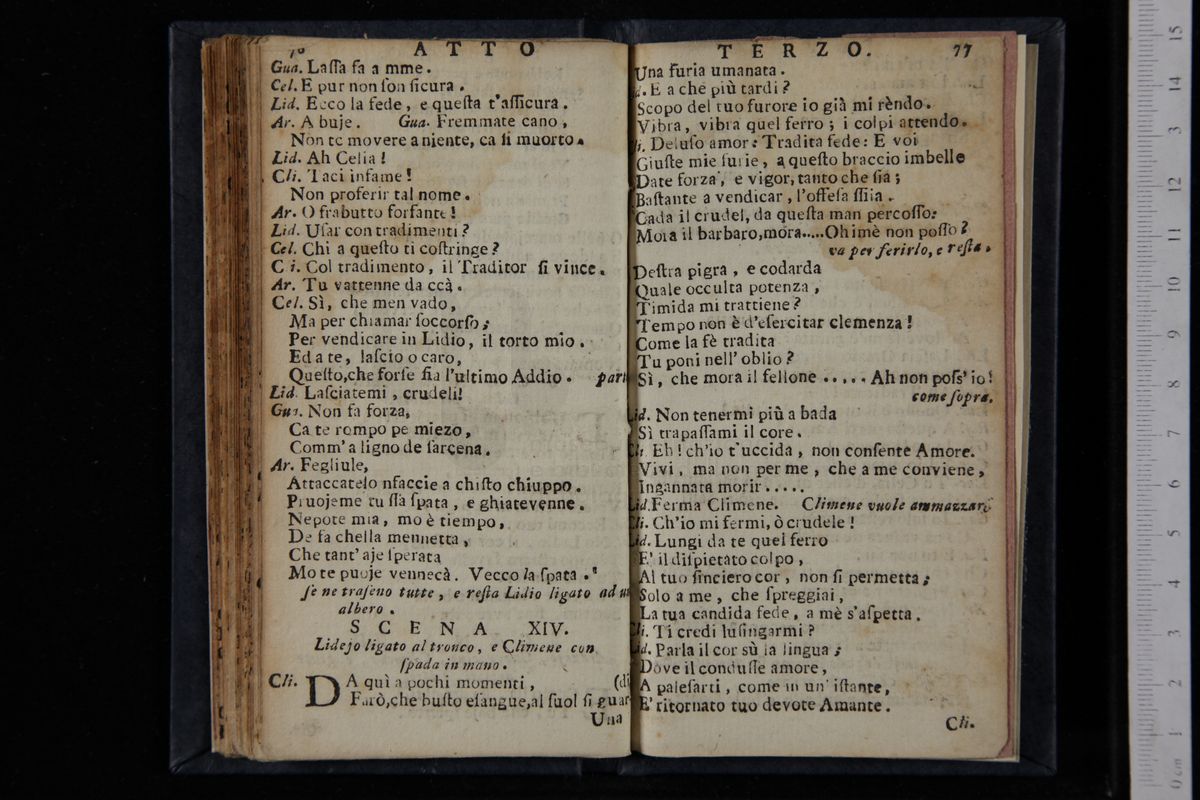 ATTO
Gua. Laſſa fa a mme.
Cel. E pur non ſon ſicura.
Lid. Ecco la fede, e queſta t'aſſicura.
Ar. A buje. Gua. Fremmate cano,
Non te movere a niente, ca ſi muorto.
Lid. Ah Celia!
Cli. Taci infame!
Non proferir tal nome.
Ar. O frabutto forfante!
Lid. Uſar con tradimenti?
Cel. Chi a queſto ti coſtringe?
C i. Col tradimento, il Traditor ſi vince.
Ar. Tu vattenne da ccà.
Cel. Sì, che men vado,
Ma per chiamar ſoccorſo;
Per vendicare in Lidio, il torto mio.
Ed a te, laſcio o caro,
Queſto, che forſe ſia l'ultimo Addio. part
Lid. Laſciatemi, crudeli!
Gua. Non fa forza,
Ca te rompo pe miezo,
Comm' a ligno de ſarcena.
Ar. Fegliule,
Attaccatelo nfaccie a chiſto chiuppo.
Piuojeme tu ſſa ſpata, e ghiatevenne.
Nepote mia, mo è tiempo,
De fa chella mennetta,
Che tant' aje ſperata
Mo te puoje vennecà. Vecco la ſpata.
ſe ne traſeno tutte, e reſta Lidio ligato ad un
albero.
SCENA XIV.
Lidejo ligato al tronco, e Climene con
ſpada in mano.
Cli. DA quì a pochi momenti, (di
Farò, che buſto eſangue, al ſuol ſi guar
Una
TERZO. 77
Una furia umanata.
d. E a che più tardi?
Scopo del tuo furore io già mi rèndo.
Vibra, vibra quel ferro; i colpi attendo.
li. Deluſo amor: Tradita fede: E voi
Giuſte mie furie, a queſto braccio imbelle
Date forza, e vigor, tanto che ſia;
Baſtante a vendicar, l'offeſa ſſiia.
Cada il crudel, da queſta man percoſſo:
Mora il barbaro, mora.....Ohimè non poſſo?
va per ferirlo, e reſta.
Deſtra pigra, e codarda
Quale occulta potenza,
Timida mi trattiene?
Tempo non è d'eſercitar clemenza!
Come la fè tradita
Tu poni nell' oblio?
Sì, che mora il fellone ..... Ah non poſs' io!
come ſopra.
Lid. Non tenermi più a bada
Sì trapaſſami il core.
Cli. Eh! ch'io t'uccida, non conſente Amore.
Vivi, ma non per me, che a me conviene,
Ingannata morir.....
Lid. Ferma Climene. Climene vuole ammazzarſi
Cli. Ch'io mi fermi, ò crudele!
Lid. Lungi da te quel ferro
E' il diſpietato colpo,
Al tuo ſinciero cor, non ſi permetta;
Solo a me, che ſpreggiai,
La tua candida fede, a mè s'aſpetta.
Cli. Ti credi luſingarmi?
Lid. Parla il cor sù la lingua;
Dove il conduſſe amore,
A paleſarti, come in un' iſtante,
E' ritornato tuo devote Amante.
Cli.